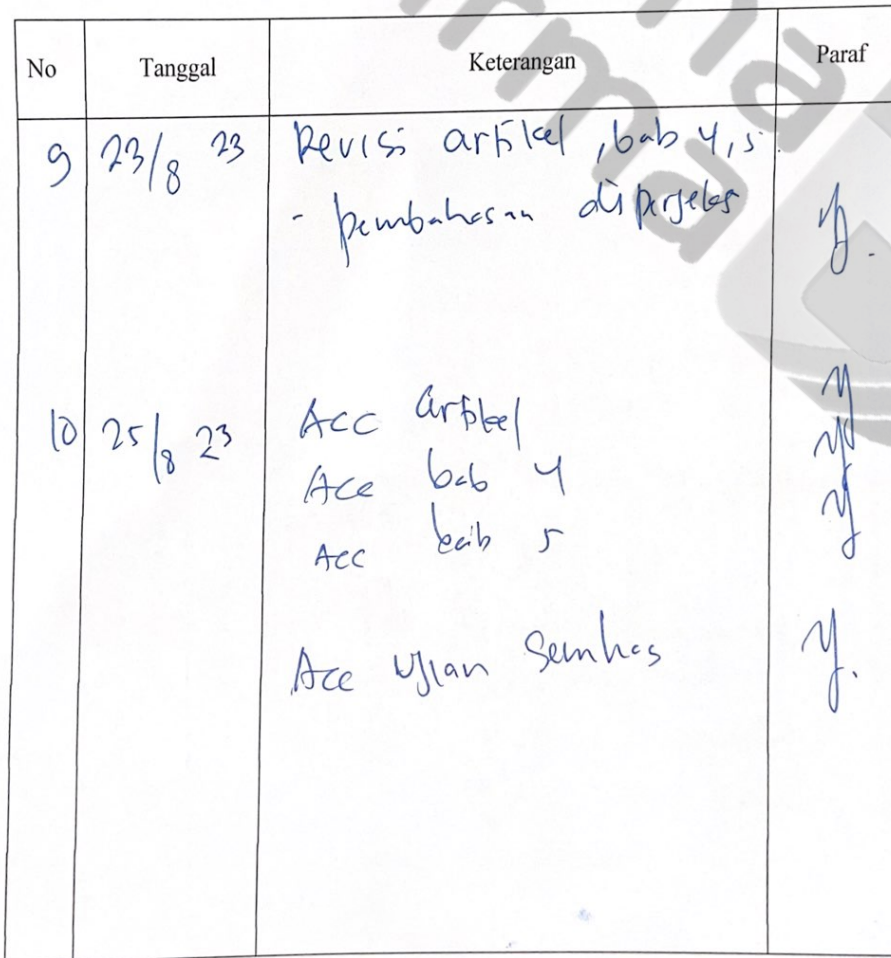 No Tanggal Keterangan Paraf
9 23/8 23 Revisi artikel, bab 4, 5
- pembahasan diperjelas
10 25/8 23 Acc artikel
Acc bab 4
Acc bab 5
Acc Ujian Semhas